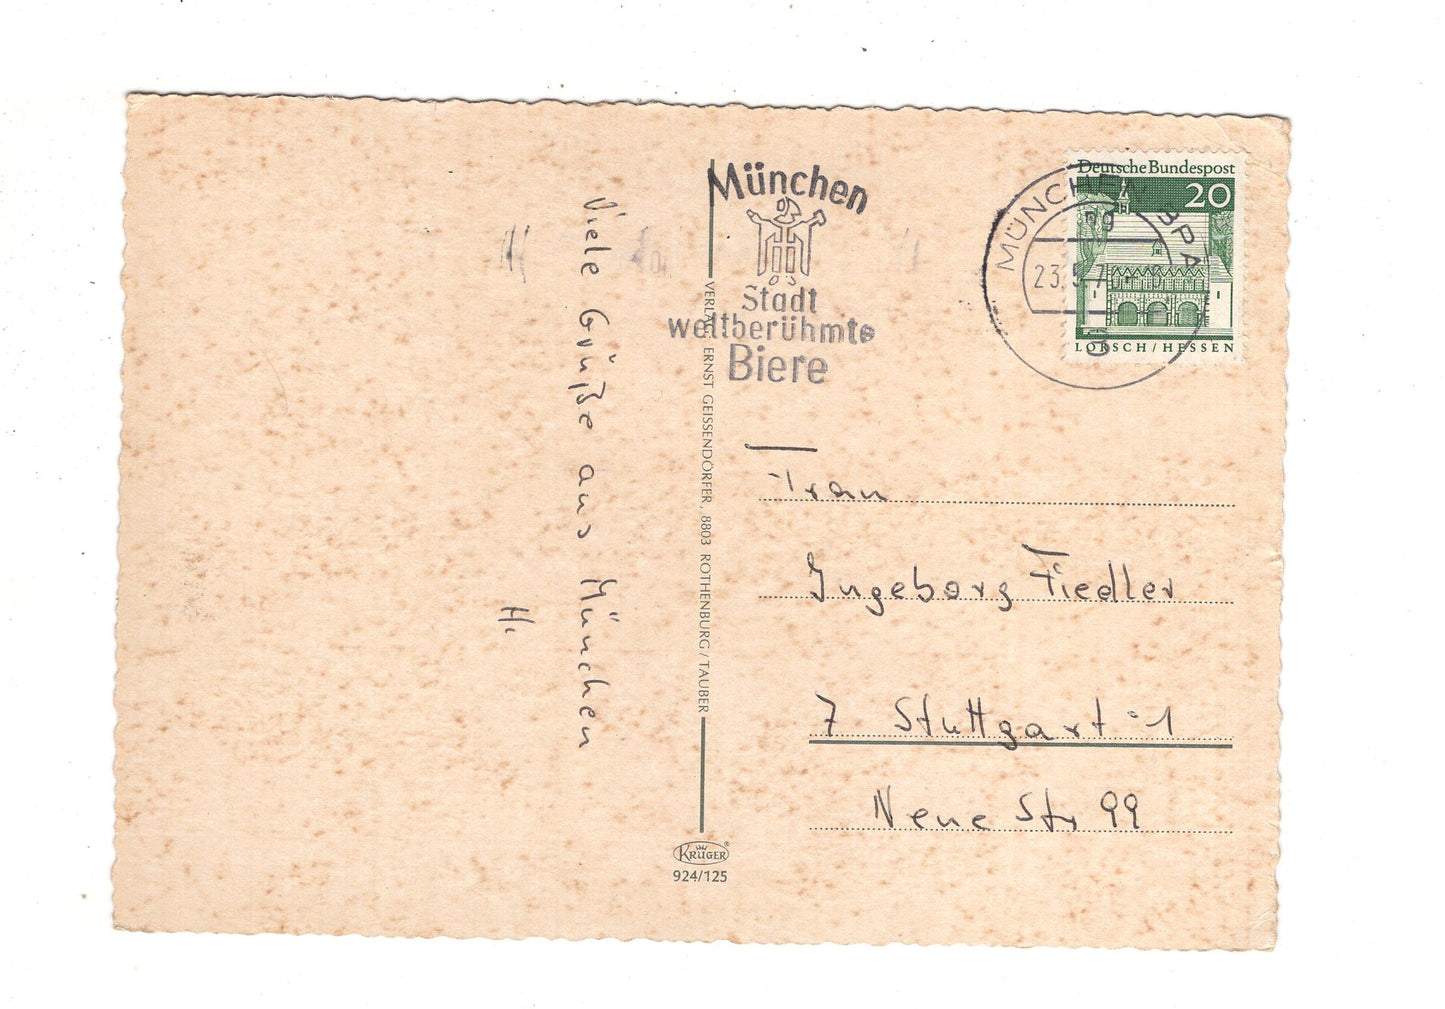 Viele Grüße aus München
H.
München
Stadt
weltberühmte
Biere
Deutsche Bundespost
20
LORSCH/HESSEN
MÜNCHEN BPA
ng
23.5.7
VERLAG ERNST GEISSENDÖRFER, 8803 ROTHENBURG/TAUBER
Frau
Ingeborg Fiedler
7 Stuttgart-1
Neue Str 99
KRÜGER®
924/125